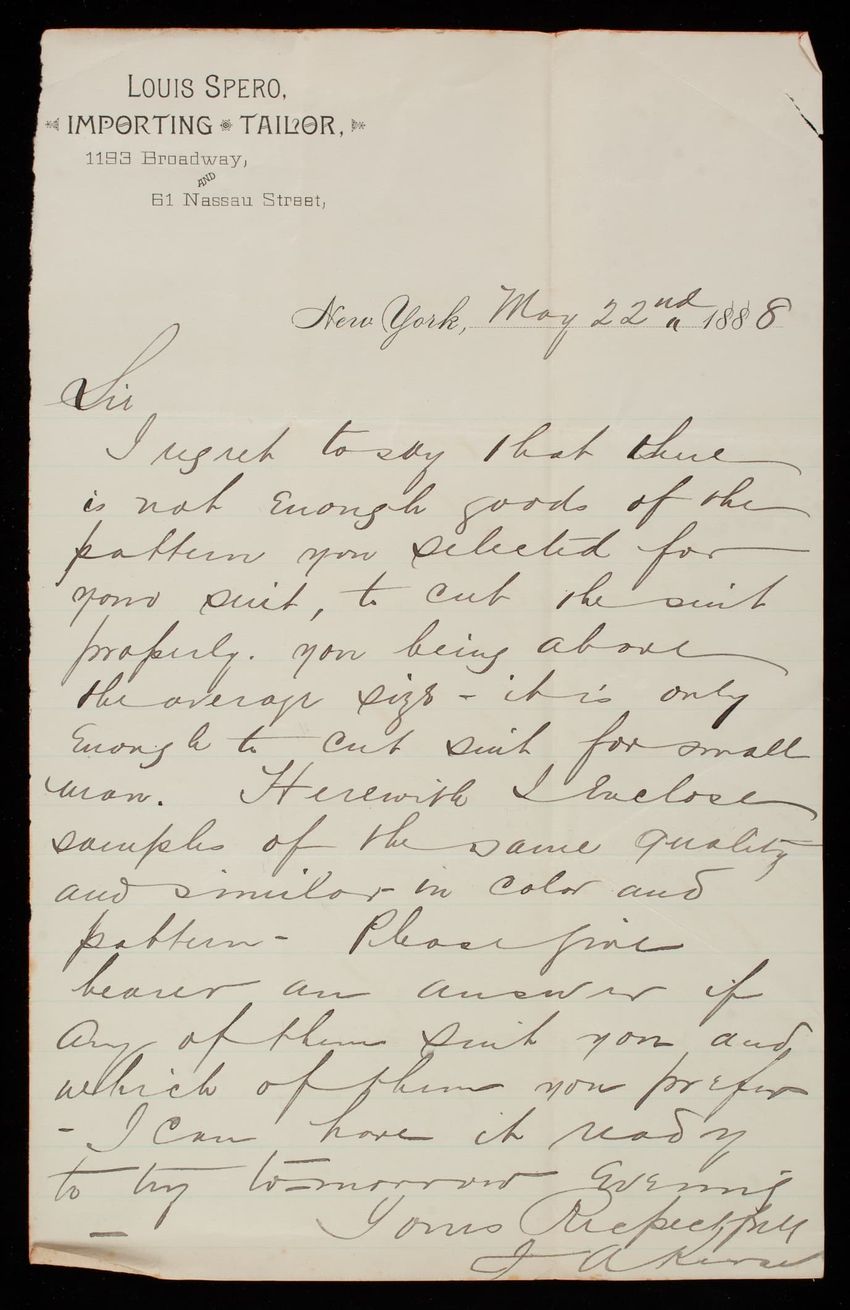 LOUIS SPERO,
IMPORTING TAILOR,
1193 Broadway,
AND
61 Nassau Street,
New York, May 22nd 1888
Sir
I regret to say that there
is not Enough goods of the
pattern you selected for
your suit, to cut the suit
properly. you being above
the average size - it is only
Enough to cut suit for small
man. Herewith I Enclose
samples of the same quality
and similar in color and
pattern - Please give
bearer an answer if
any of them suit you and
which of them you prefer
- I can have it ready
to try to-morrow Evening
Yours Respectfull
J A